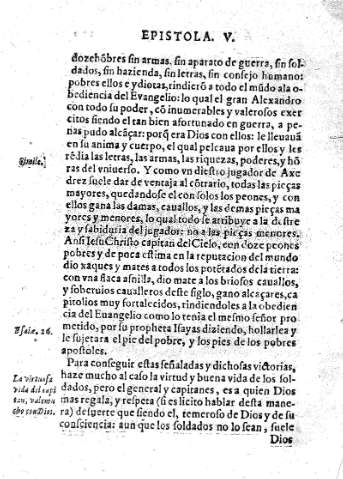 EPISTOLA. V.
dozehõbres sin armas, sin aparato de guerra, sin sol-
dados, sin hazienda, sin letras, sin consejo humano:
pobres ellos e ydiotas, rindierõ a todo el mũdo ala o-
bediencia del Euangelio: lo qual el gran Alexandro
con todo su poder, cõ inumerables y valerosos exer
citos siendo el tan bien afortunado en guerra, a pe-
nas pudo alcãçar: porq̃ era Dios con ellos: le lleuauã
en su anima y cuerpo, el qual peleaua por ellos y les
rẽdia las letras, las armas, las riquezas, poderes, y hõ
Simile.
ras del vniuerso. Y como vn diestro jugador de Axe
drez suele dar de ventaja al cõtrario, todas las pieças
mayores, quedandose el con solos los peones, y con
ellos gana las damas, cauallos, y las demas pieças ma
yores y menores, lo qual todo se atribuye a la destre
za y sabiduria del jugador: no a las pieças menores.
Ansi Jesu Christo capitan del Cielo, con doze peones
pobres y de poca estima en la reputacion del mundo
dio xaques y mates a todos los potẽtados dela tierra:
con vna flaca asnilla, dio mate a los briosos cauallos,
y soberuios caualleros deste siglo, gano alcaçares, ca
pitolios muy fortalecidos, rindiendoles a la obedien
cia del Euangelio como lo tenia el mesmo señor pro
Esaiæ. 26.
metido, por su propheta Isayas diziendo, hollarlea y
le sujetara el pie del pobre, y los pies de los pobres
apostoles.
Para conseguir estas señaladas y dichosas victorias,
La virtuosa
haze mucho al caso la virtud y buena vida de los sol-
vida del capi
dados, pero el general y capitanes, es a quien Dios
tan, vale mu
mas regala, y respeta (si es licito hablar desta mane-
cho con Dios.
ra) de suerte que siendo el, temeroso de Dios y de su
consciencia: aun que los soldados no lo sean, suele
Dios